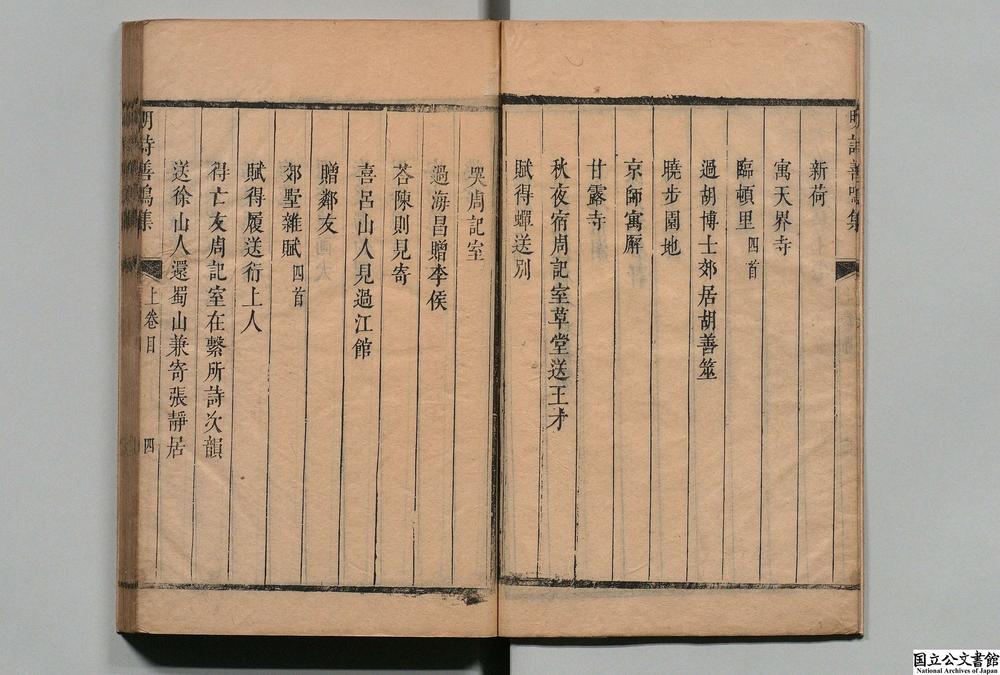 明詩善鳴集
新荷
寓天界寺
臨頓里 四首
過胡博士郊居胡善筮
曉步園地
京師寓廨
甘露寺
秋夜宿周記室草堂送王才
賦得蟬送別
哭周記室
過海昌贈李侯
荅陳則見寄
喜呂山人見過江館
贈鄰友
郊墅雜賦 四首
賦得履送衍上人
得亡友周記室在繫所詩次韻
送徐山人還蜀山兼寄張靜居
明詩善鳴集 上卷目 四
国立公文書館
National Archives of Japan